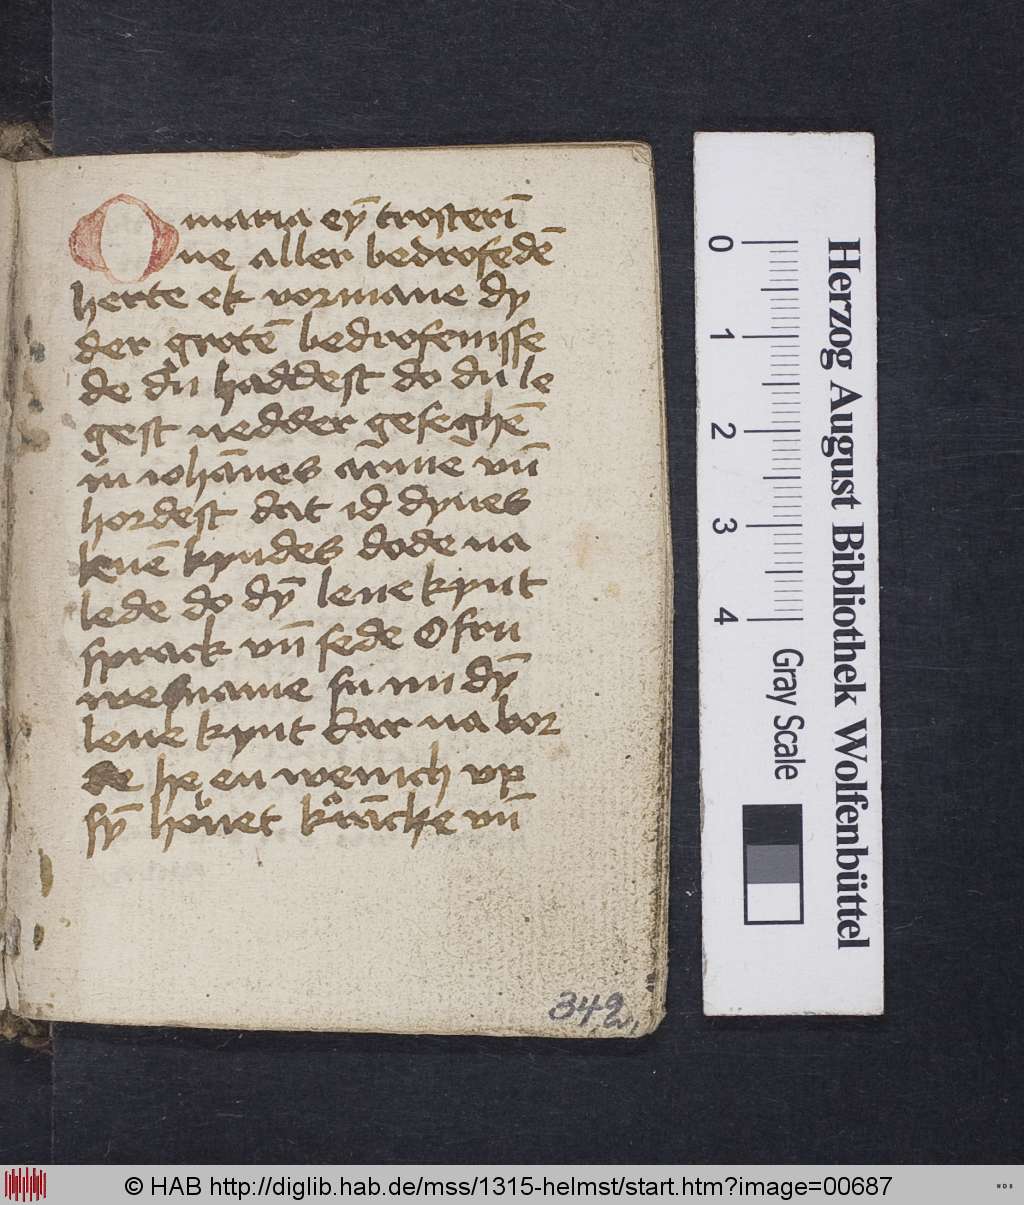 O maria eȳ trosterī
ne aller bedrofedē
herte ek vormane dy
der grotē bedrofenisse
de du haddest do du le
gest nedder geseghē
in iohānes arme vn̄
hordest dat id dynes
leuē kyndes dode na
lede do dȳ leue kynt
sprack vn̄ sede O fru
wesname su nu dȳ
leue kynt dar na bor
de he en wenich vp
sȳ houet krācke vn̄
342
0
1
2
3
4
Gray Scale
Herzog August Bibliothek Wolfenbüttel
© HAB http://diglib.hab.de/mss/1315-helmst/start.htm?image=00687